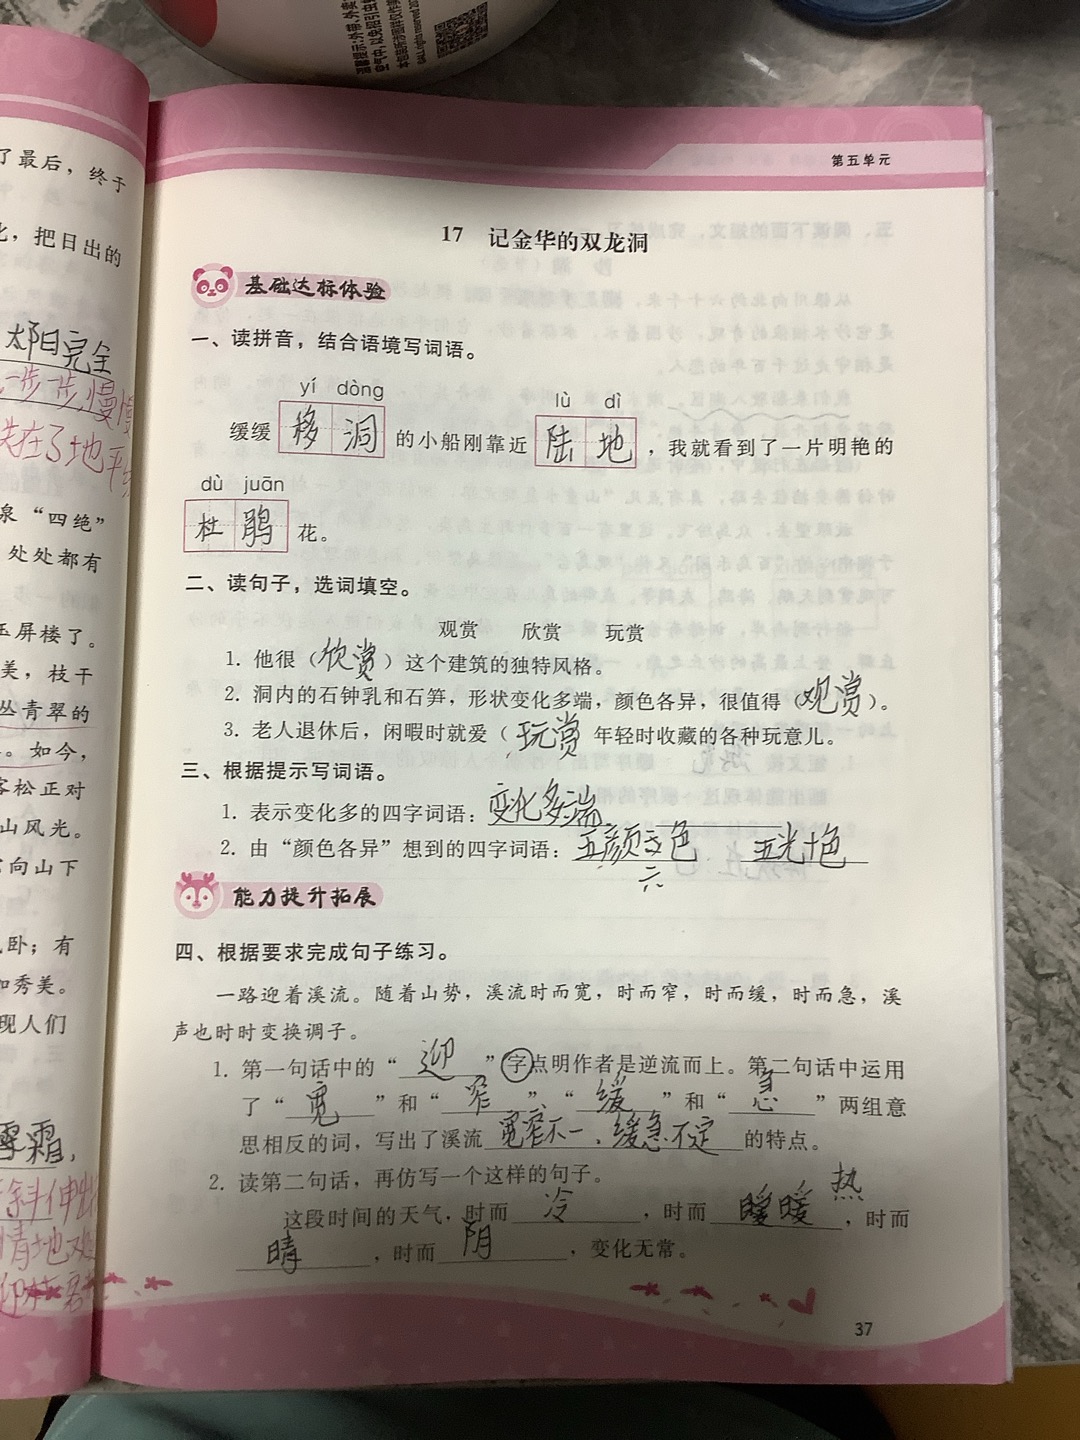 温馨提示:外带、外卖
空气中,以免招引虫
GALL rights reserved 20
了最后，终于
，把日出的
太阳完全
一步一步,慢慢
失在了地平
泉“四绝”
处处都有
玉屏楼了。
美，枝干
丛青翠的
。如今，
客松正对
山风光。
向山下
卧；有
和秀美。
现人们
雪霜,
斜伸出
情地欢
第五单元
17 记金华的双龙洞
基础达标体验
一、读拼音，结合语境写词语。
yí dòng lù dì
缓缓 移洞 的小船刚靠近 陆地 ，我就看到了一片明艳的
dù juān
杜鹃 花。
二、读句子，选词填空。
观赏 欣赏 玩赏
1. 他很（欣赏）这个建筑的独特风格。
2. 洞内的石钟乳和石笋，形状变化多端，颜色各异，很值得（观赏）。
3. 老人退休后，闲暇时就爱（玩赏 年轻时收藏的各种玩意儿。
三、根据提示写词语。
1. 表示变化多的四字词语：变化多端
2. 由“颜色各异”想到的四字词语：五颜 色 五光十色
六
能力提升拓展
四、根据要求完成句子练习。
一路迎着溪流。随着山势，溪流时而宽，时而窄，时而缓，时而急，溪
声也时时变换调子。
1. 第一句话中的“迎”字点明作者是逆流而上。第二句话中运用
了“宽”和“窄”、“缓”和“急”两组意
思相反的词，写出了溪流宽窄不一、缓急不定的特点。
2. 读第二句话，再仿写一个这样的句子。
热
这段时间的天气，时而冷，时而暖暖，时而
晴，时而阴，变化无常。
37